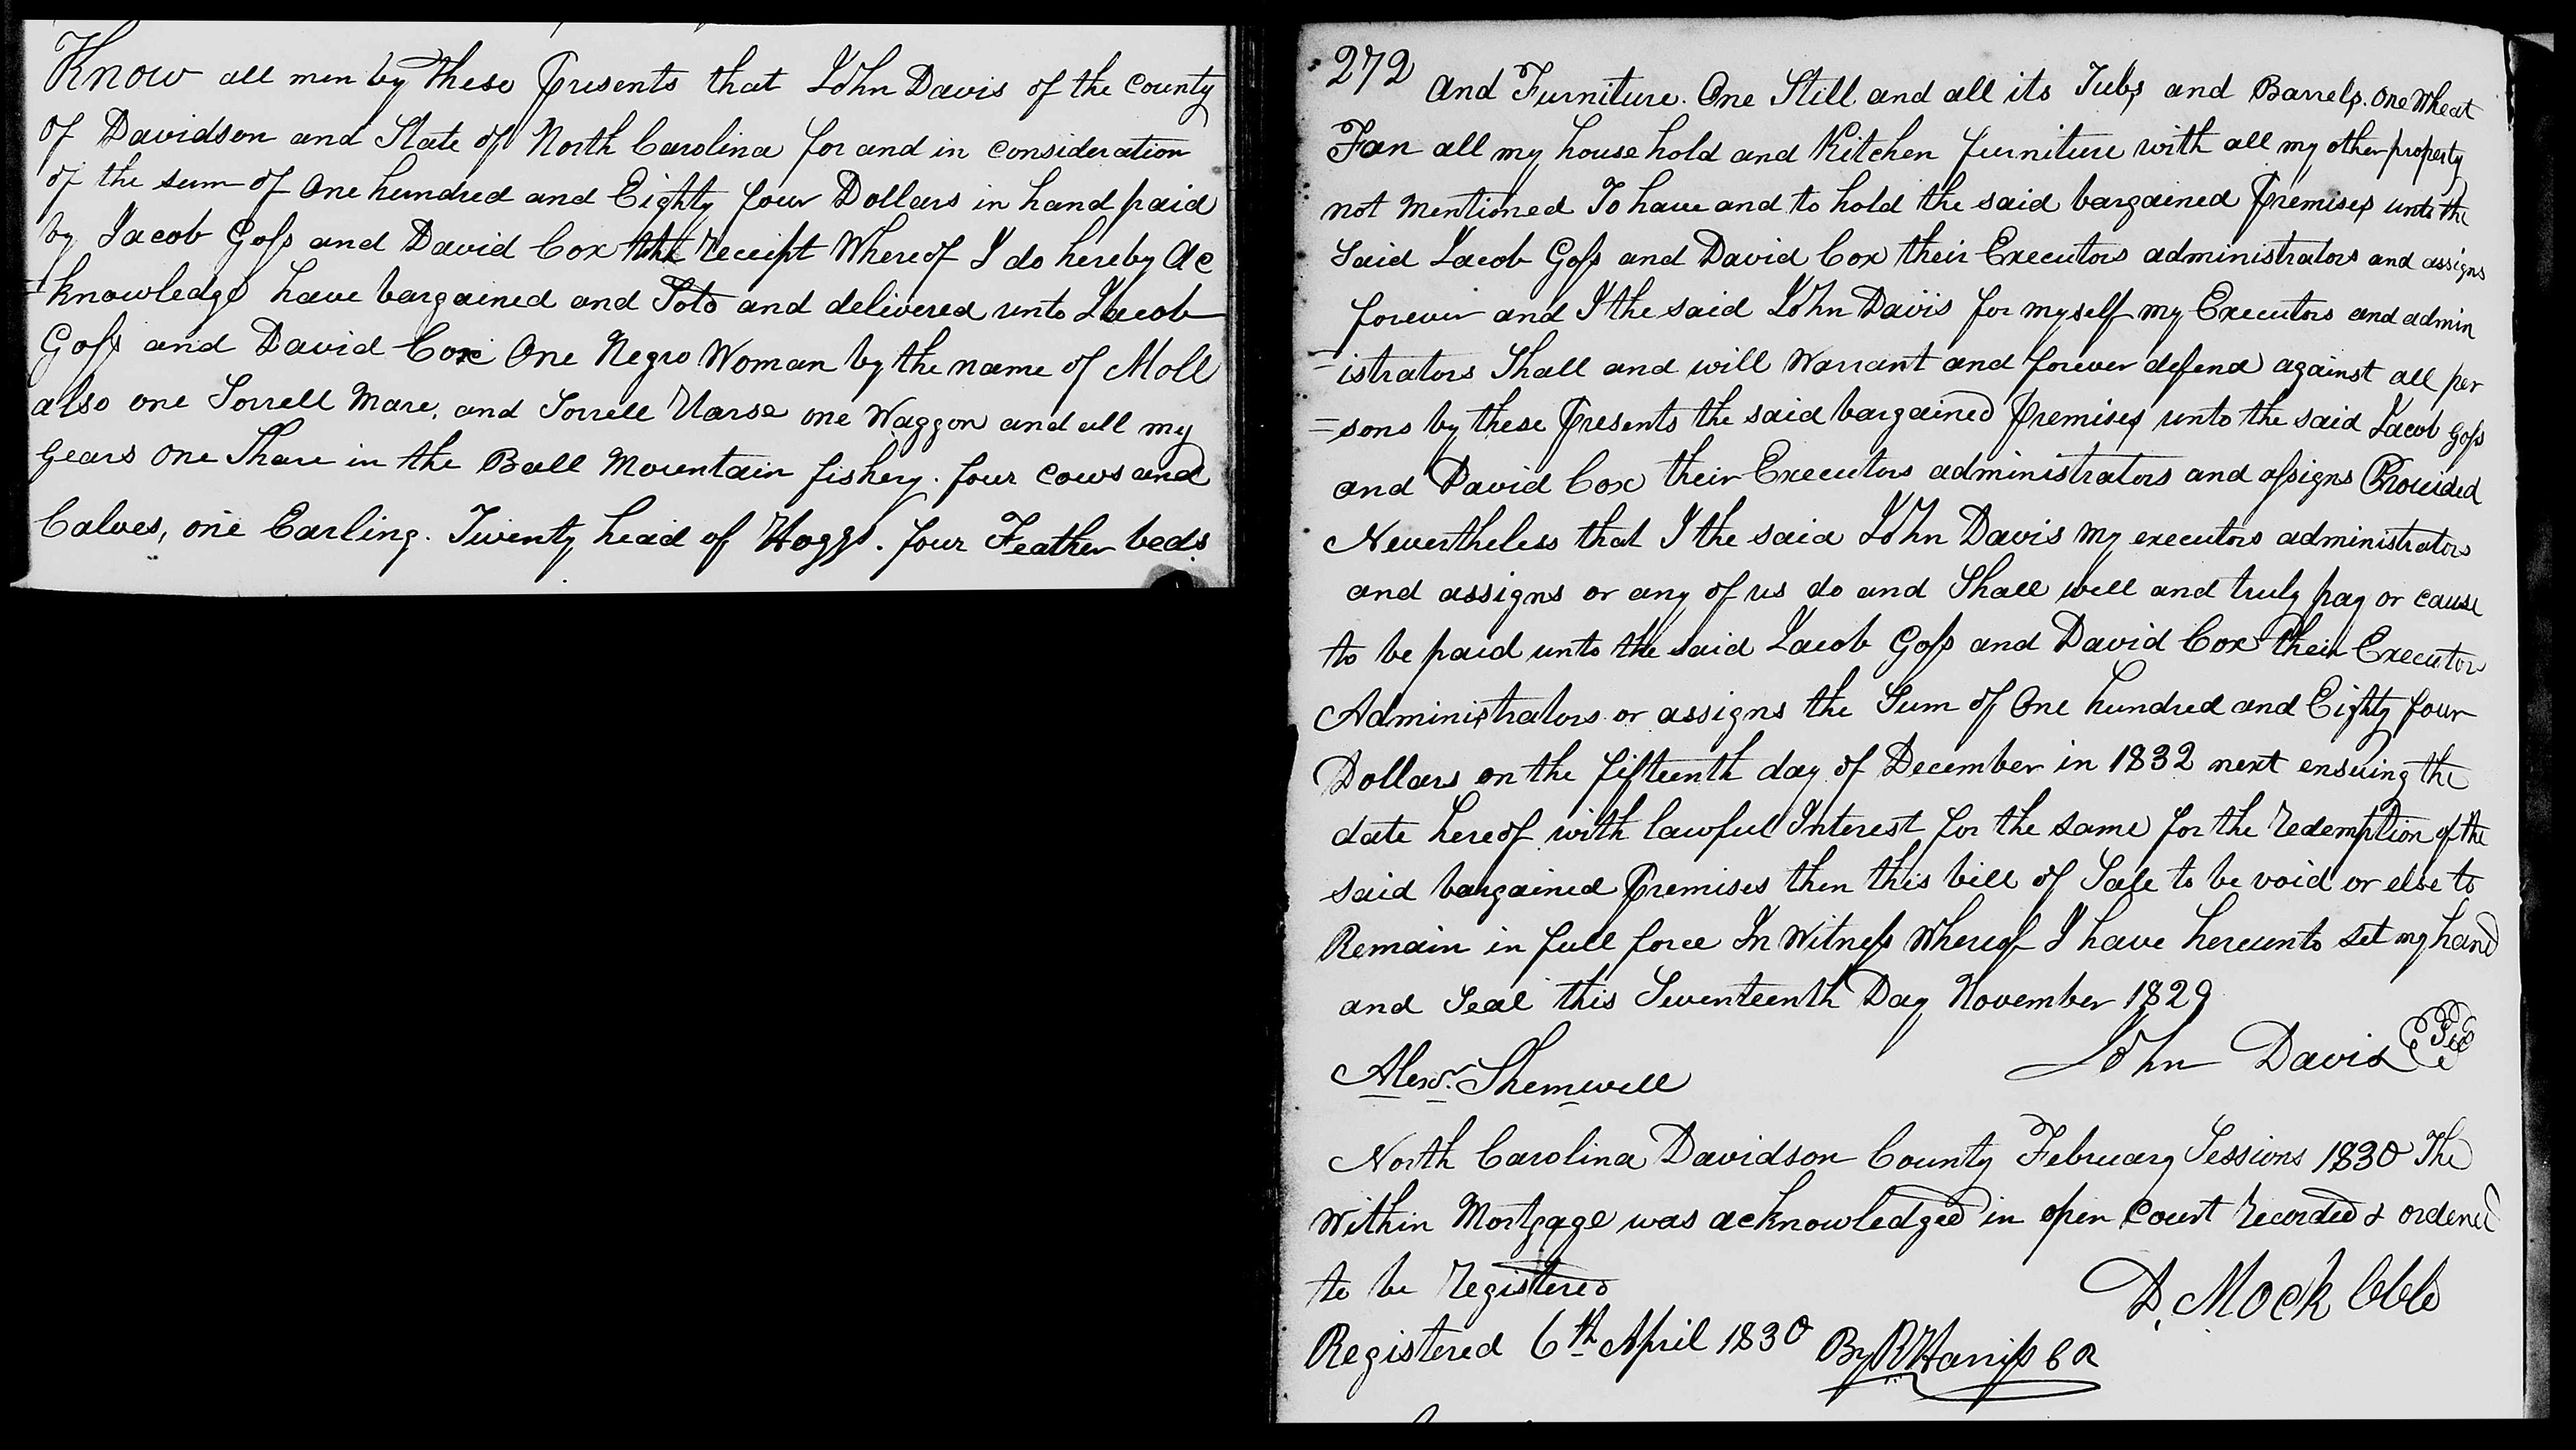 Know all men by these presents that John Davis of the county
of Davidson and State of North Carolina for and in consideration
of the sum of One hundred and Eighty four Dollars in hand paid
by Jacob Goss and David Cox the receipt Whereof I do hereby Ac
=knowledge have bargained and Sold and delivered unto Jacob
Goss and David Cox One Negro Woman by the name of Moll
also one Sorrell Mare, and Sorrell Harse one Waggon and all my
Gears One Share in the Ball Mountain fishery. four cows and
Calves, one Earling. Twenty head of Hoggs. four Feather beds
272 And Furniture. One Still and all its Tubs and Barrels. One Wheat
Fan all my house hold and Kitchen furniture with all my other property
not Mentioned To have and to hold the said bargained premises unto the
Said Jacob Goss and David Cox their Executors administrators and assigns
forever and I the said John Davis for myself my Executors and admin
=istrators Shall and will Warrant and forever defend against all per
=sons by these presents the said bargained premises unto the said Jacob Goss
and David Cox their Executors administrators and assigns Provided
Nevertheless that I the said John Davis my executors administrators
and assigns or any of us do and Shall well and truly pay or cause
to be paid unto the said Jacob Goss and David Cox their Executors
Administrators or assigns the Sum of One hundred and Eighty four
Dollars on the fifteenth day of December in 1832 next ensuing the
date hereof with lawful Interest for the same for the redemption of the
said bargained premises then this bill of Sale to be void or else to
Remain in full force In Witness Whereof I have hereunto set my hand
and Seal this Seventeenth Day November 1829
Alexr. Shemwell John Davis
North Carolina Davidson County February Sessions 1830 The
Within Mortgage was acknowledged in open Court recorded & ordered
to be registered
D. Mock
Registered 6th April 1830 By R Harriss